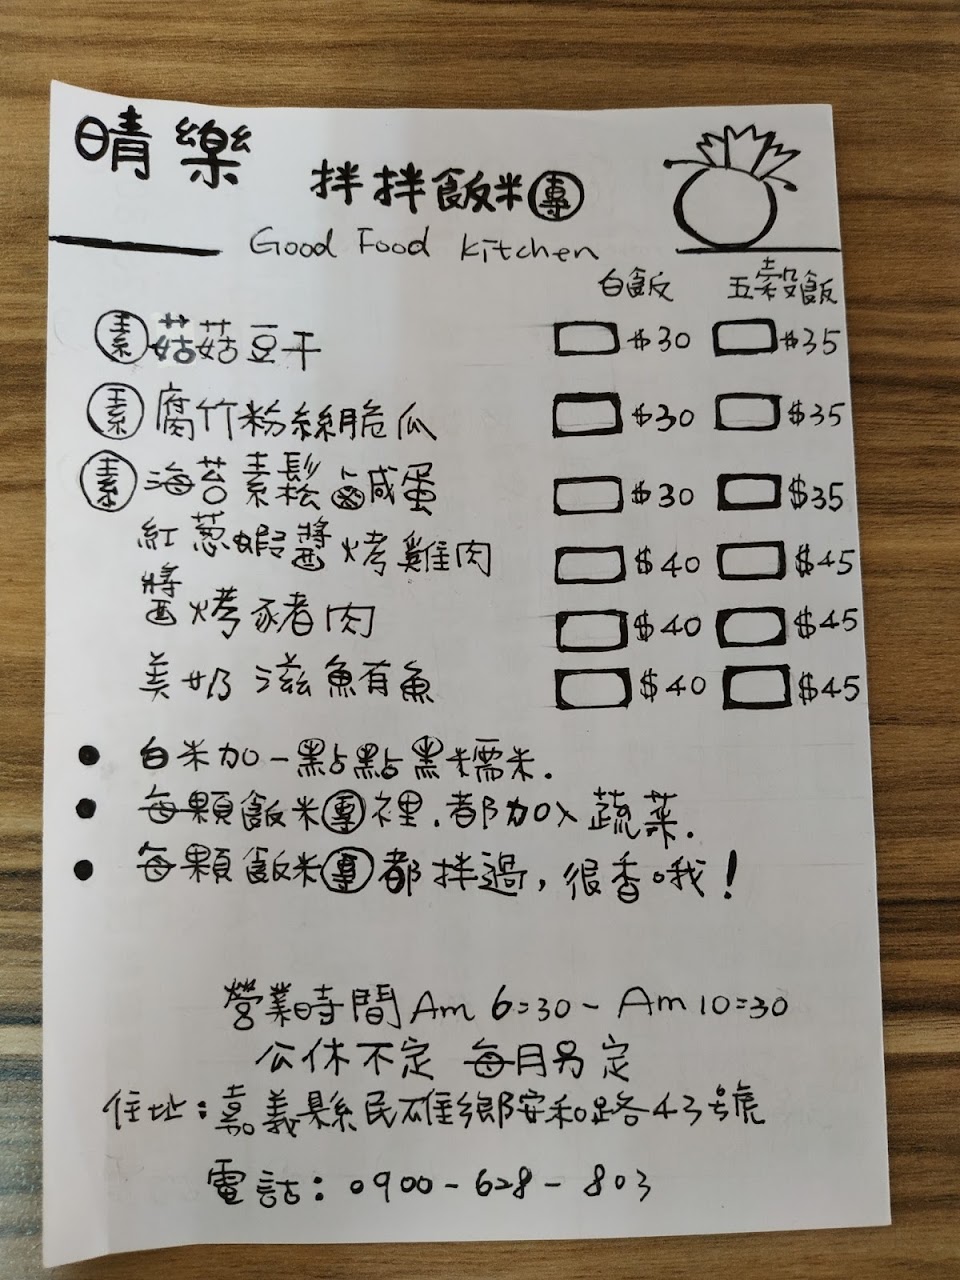 晴樂
拌拌飯米團
Good Food Kitchen
白飯 五穀飯
素 菇菇豆干 $30 $35
素 腐竹粉絲脆瓜 $30 $35
素 海苔素鬆鹵鹹蛋 $30 $35
紅蔥蝦醬烤雞肉 $40 $45
醬烤豬肉 $40 $45
美奶滋魚有魚 $40 $45
● 白米加一點點黑糯米.
● 每顆飯米團裡.都加入蔬菜.
● 每顆飯米團都拌過,很香哦!
營業時間Am 6:30-Am 10:30
公休不定 每月另定
住址:嘉義縣民雄鄉安和路43號
電話:0900-628-803